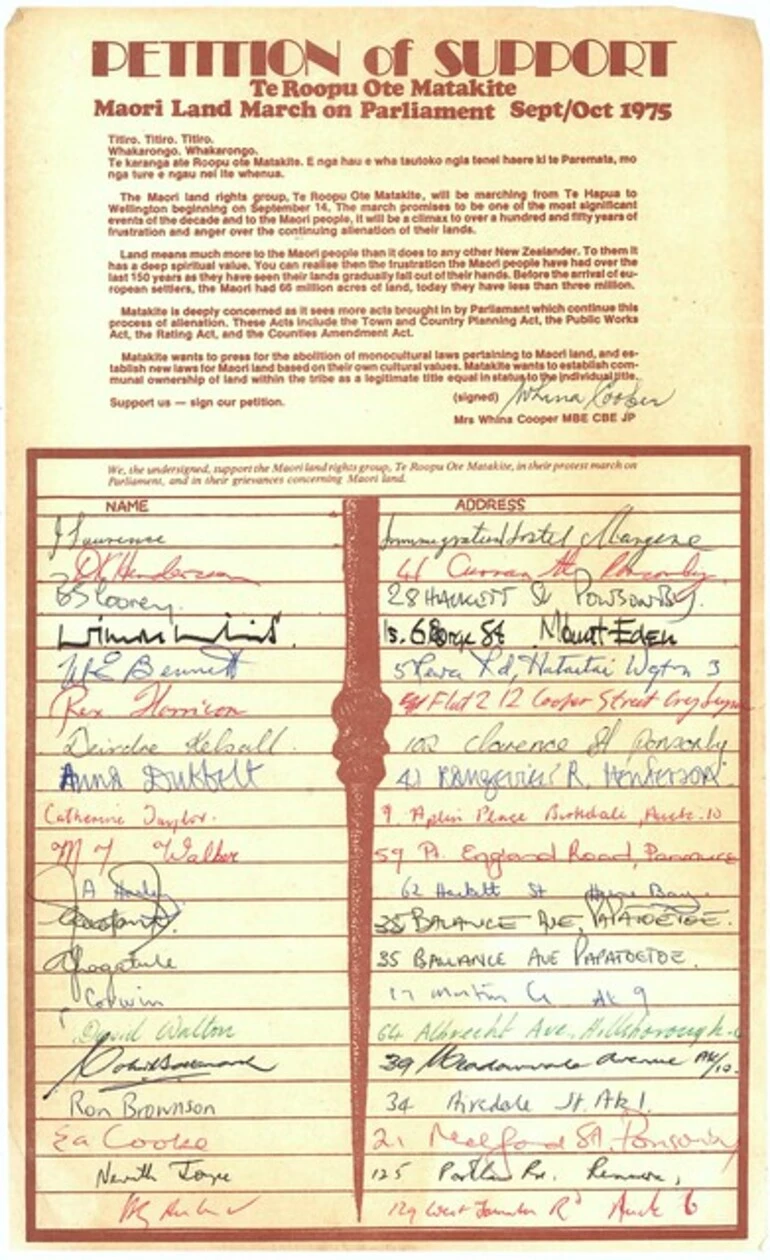 PETITION of SUPPORT
Te Roopu Ote Matakite
Maori Land March on Parliament Sept/Oct 1975
Titiro. Titiro. Titiro.
Whakarongo. Whakarongo.
Te karanga ate Roopu ote Matakite. E nga hau e wha tautoko ngia tenei haere ki te Paremata, mo
nga ture e ngau nei ite whenua.
The Maori land rights group, Te Roopu Ote Matakite, will be marching from Te Hapua to
Wellington beginning on September 14. The march promises to be one of the most significant
events of the decade and to the Maori people, it will be a climax to over a hundred and fifty years of
frustration and anger over the continuing alienation of their lands.
Land means much more to the Maori people than it does to any other New Zealander. To them it
has a deep spiritual value. You can realise then the frustration the Maori people have had over the
last 150 years as they have seen their lands gradually fall out of their hands. Before the arrival of eu-
ropean settlers, the Maori had 66 million acres of land, today they have less than three million.
Matakite is deeply concerned as it sees more acts brought in by Parliamant which continue this
process of alienation. These Acts include the Town and Country Planning Act, the Public Works
Act, the Rating Act, and the Counties Amendment Act.
Matakite wants to press for the abolition of monocultural laws pertaining to Maori land, and es-
tablish new laws for Maori land based on their own cultural values. Matakite wants to establish com-
munal ownership of land within the tribe as a legitimate title equal in status to the individual title.
Support us — sign our petition. (signed) Whina Cooper
Mrs Whina Cooper MBE CBE JP
We, the undersigned, support the Maori land rights group, Te Roopu Ote Matakite, in their protest march on
Parliament, and in their grievances concerning Maori land.
NAME ADDRESS
J Laurence Immigration Hostel Mangere
DK Henderson 41 Curran St Ponsonby
28 HACKETT St PONSONBY.
15 George St Mount Eden
Bennett Rd, Hataitai Wgtn 3
Rex Harrison Flat 2 12 Cooper Street Grey Lynn
Deirdre Kelsall. 102 Clarence St Ponsonby
Anna 41 R. HENDERSON
Catherine Taylor. 9. Aplin Place Birkdale, Auck. 10
M Walker 59 Pt. England Road, Panmure
A 62 Hackett St Herne Bay.
35 BALLANCE AVE, PAPATOETOE.
35 BALLANCE AVE PAPATOETOE.
Corwin 17 Ak 9
David Walton 64 Albrecht Ave. Hillsborough.
39 Meadowvale Avenue AK/10.
Ron Brownson 34 Airedale St. Ak 1.
Ea Cooke 21 Melford St. Ponsonby
125 Portland Rd. Remuera,
129 West Rd Auck 6